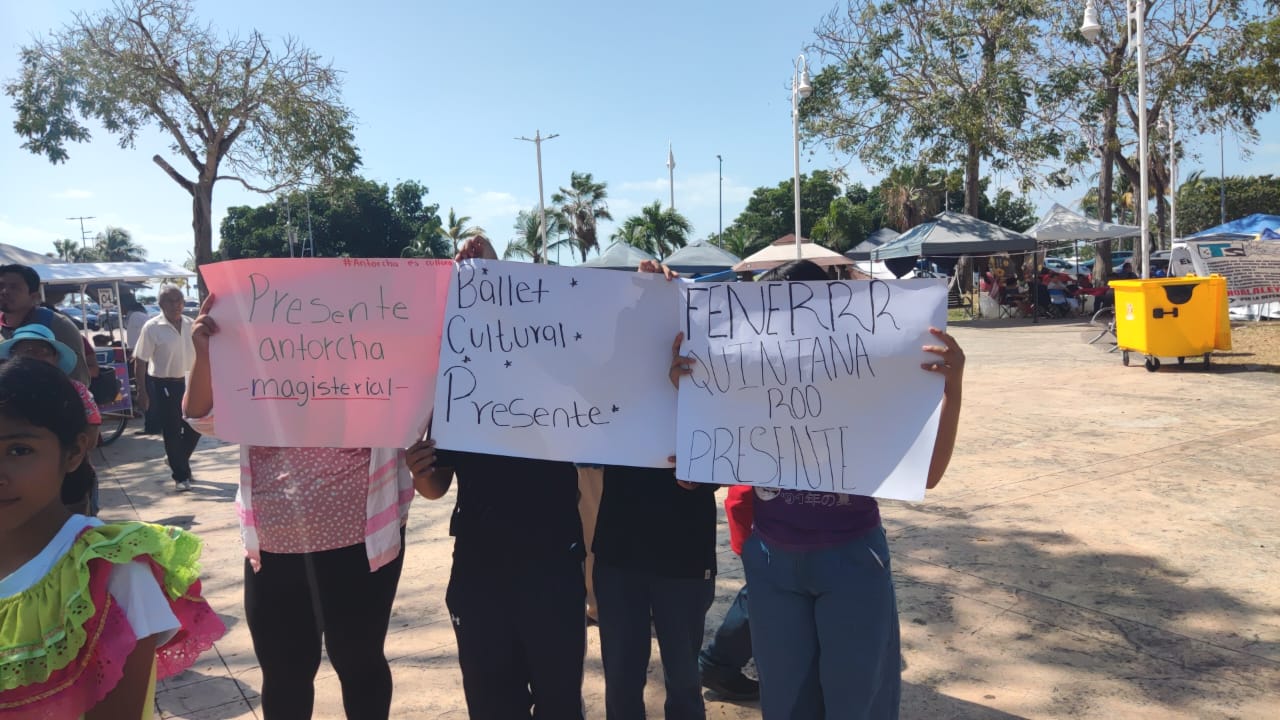 #Antorcha es cultura
Presente
antorcha
-magisterial-
Ballet
Cultural
Presente
FENERRR
QUINTANA
ROO
PRESENTE